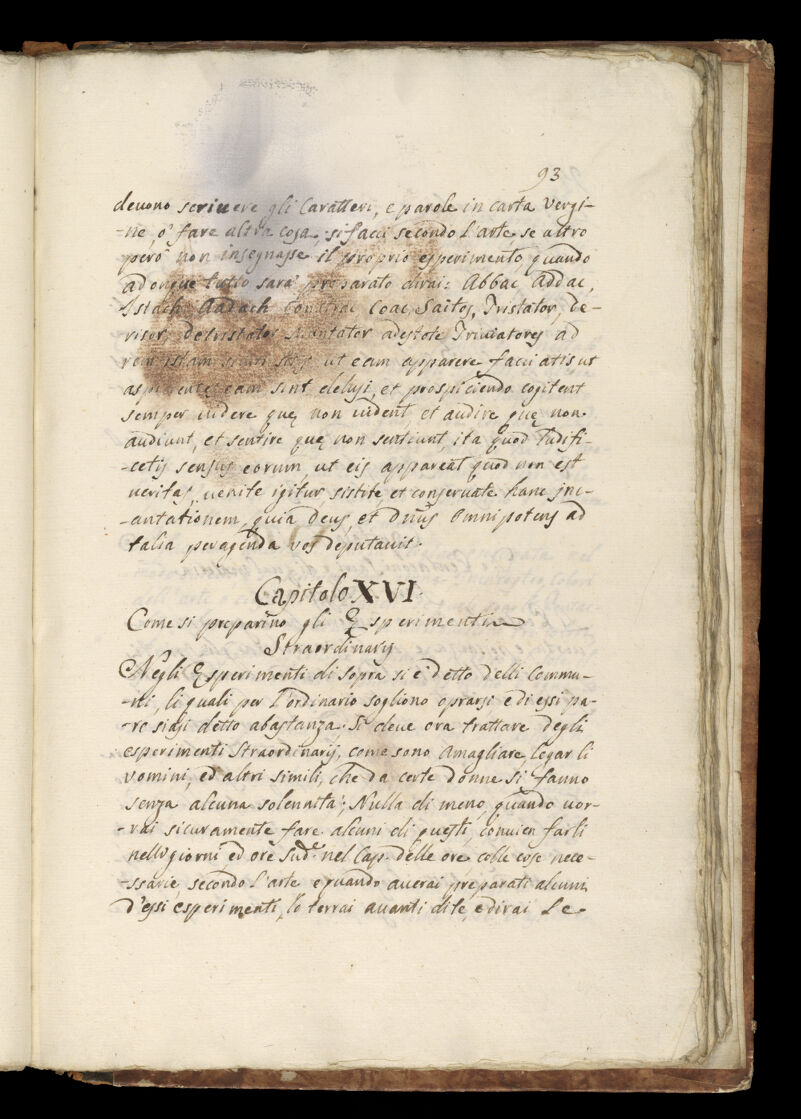 93
deuono scriuere gli Caratteri, e parole in carta Vergi-
-ne, o' fare altra cosa, si facci secondo l'arte se altro
pero' non insegnasse il proprio esperimento, quando
adonque tutto sara' preparato dirai: Abbac, Addac,
Istach, Audach, Coac, Saitos, Tristator, de-
risor, detristator, adestote Triuiatores ad
rem istam ut eam apparere faciatis ut
eam sint delusi, et prospiciendo cogitent
semper uidere quę non uident et audire quę non
audiunt, et sentire quę non sentiunt, ita quod ludifi-
-cetis sensus eorum, ut eis appareat quod non est
ueritas, uenite igitur sistite, et conseruate hanc inc-
-antationem, quia Deus, et Dnũs Omnipotens ad
talia peragenda vos deputauit.
Capitolo XVI.
Come si preparino gli Esperimenti
Straordinarij
Negli Esperimenti di sopra si e' detto delli Commu-
-ni, li quali per l'ordinario sogliono oprarsi e di essi pa-
-re siasi detto abastanza. Si deue ora trattare degli
esperimenti Straordinarij, come sono Amagliare, legar li
Vomini, ed altri simili, che da certe donne si fanno
senza alcuna solennita'; Nulla di meno, quando uor-
-rai sicuramente fare alcuni di questi, conuien farli
nelli giorni, ed ore Sud.ᵉ nel Cap. delle ore, colle cose nece-
-ssarie, secondo l'arte e quando auerai preparati alcuni
d'essi esperimenti, lo terrai auanti di te, e dirai Se-